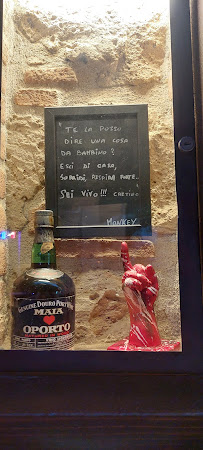 TE LA POSSO
DIRE UNA COSA
DA BAMBINO?
ESCI DI CASA,
SORRIDI, RESPIRA FORTE.
SEI VIVO!!! CRETINO
MONKEY
GENUINE DOURO PORT WINE
MAIA
OPORTO